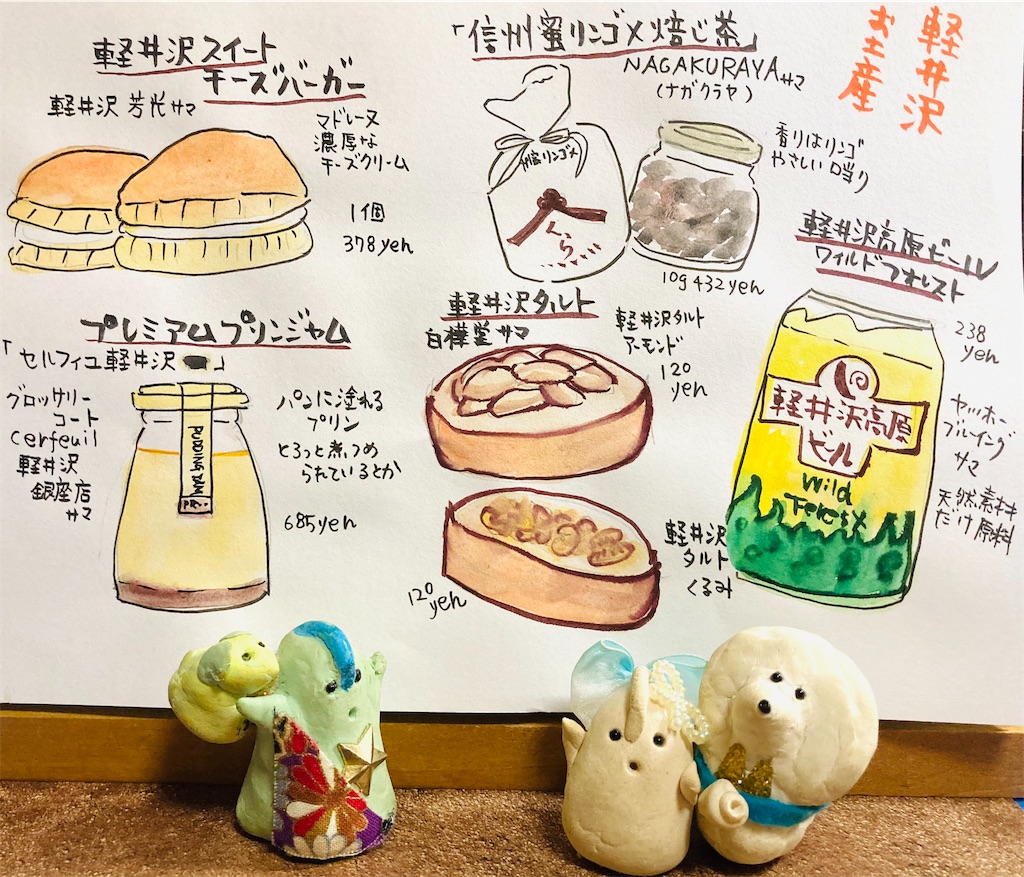 軽井沢
お土産
軽井沢スイート
チーズバーガー
軽井沢 芳光サマ
マドレーヌ
濃厚な
チーズクリーム
1個
378yen
「信州蜜リンゴ×焙じ茶」
NAGAKURAYAサマ
(ナガクラヤ)
州蜜リンゴ×
くら
香りはリンゴ
やさしい口当り
10g 432yen
軽井沢高原ビール
ワイルドフォレスト
238
yen
軽井沢高原
ビール
Wild
Forest
ヤッホー
ブルーイング
サマ
天然素材
だけ原料
プレミアムプリンジャム
「セルフィユ軽井沢」
グロッサリー
コート
cerfeuil
軽井沢
銀座店
サマ
PUDDING JAM
パンに塗れる
プリン
とろっと煮つめ
られているとか
685yen
軽井沢タルト
白樺堂サマ
軽井沢タルト
アーモンド
120
yen
軽井沢
タルト
くるみ
120
yen